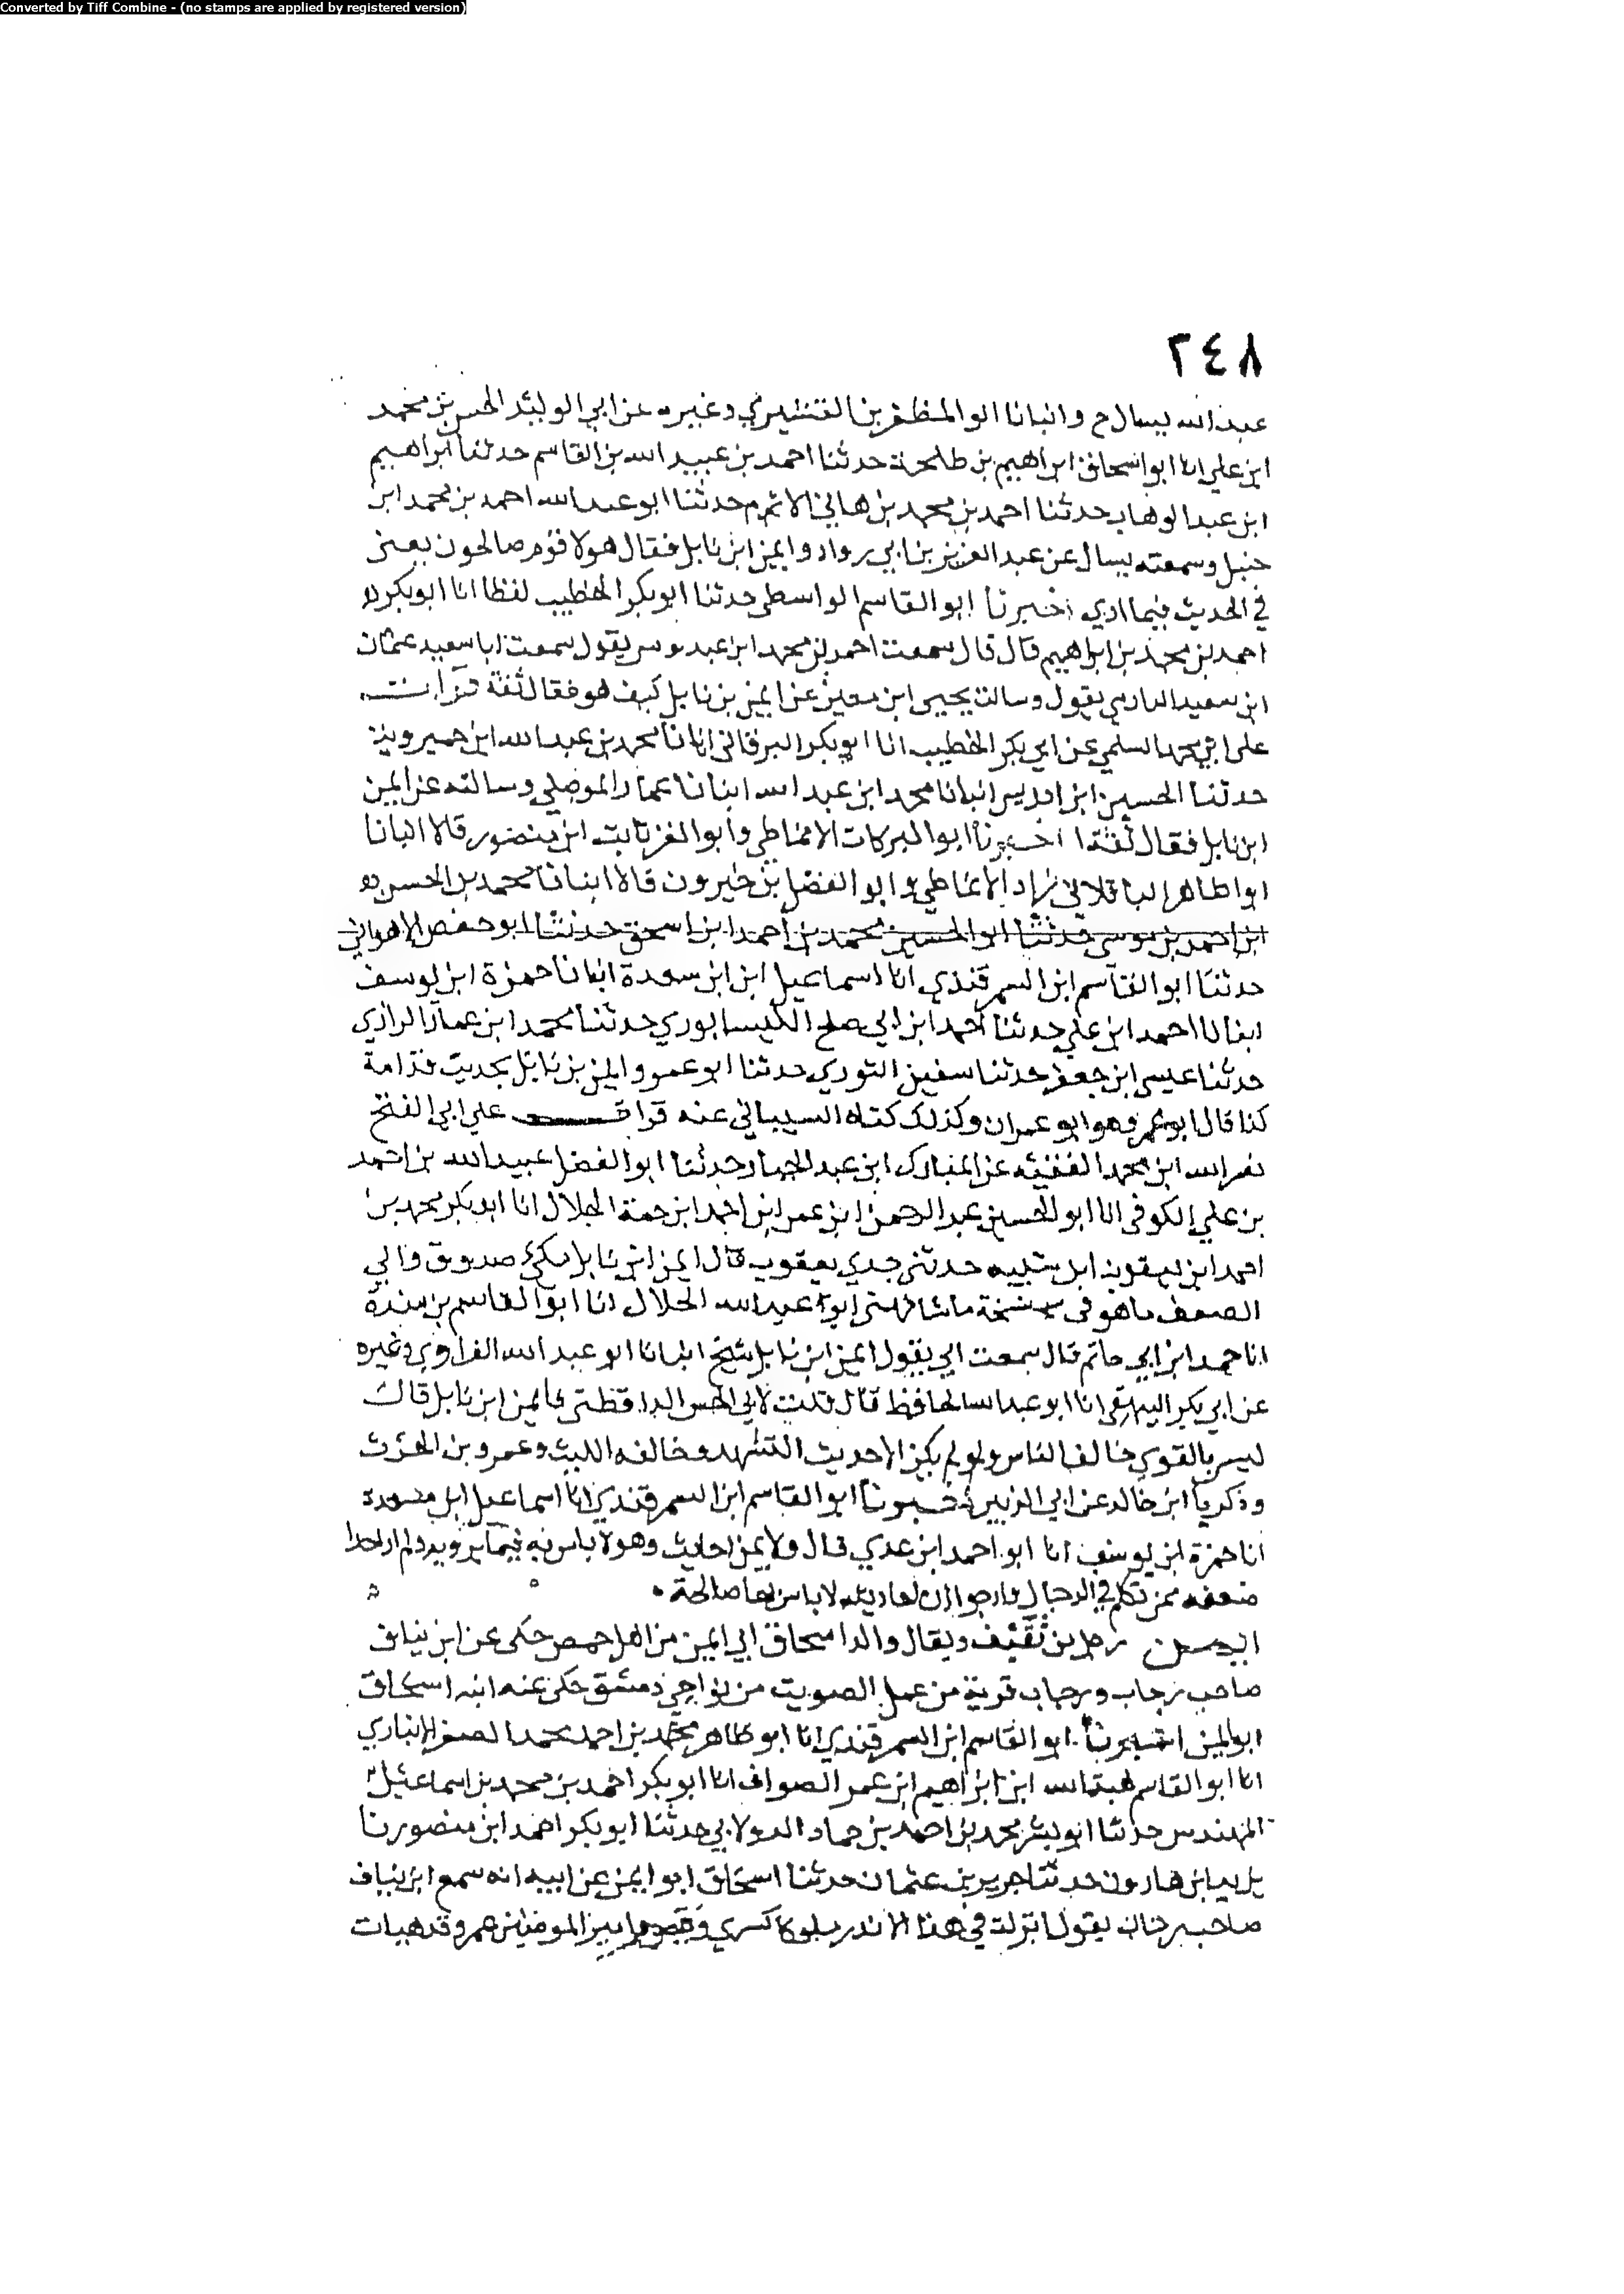 Converted by Tiff Combine - (no stamps are applied by registered version)
٢٤٨
عبد الله يسال ح وانبانا ابو المظفر بن القشيري وغيره عن ابي الوليد الحسن بن محمد
ابن علي انا ابو اسحاق ابراهيم بن طلحة حدثنا احمد بن عبيد الله بن القاسم حدثنا ابراهيم
ابن عبد الوهاب حدثنا احمد بن محمد بن هاني الاثرم حدثنا ابو عبد الله احمد بن محمد ابن
حنبل وسمعته يسال عن عبد العزيز بن ابي رواد وايمن ابن نابل فقال هولا قوم صالحون يعني
في الحديث فيما اري اخبرنا ابو القاسم الواسطي حدثنا ابو بكر الخطيب لفظا انا ابو بكر
احمد بن محمد بن ابراهيم قال قال سمعت احمد بن محمد ابن عبدوس يقول سمعت ابا سعيد عثمان
ابن سعيد الدارمي يقول وسالت يحيى ابن معين عن ايمن بن نابل كيف هو فقال ثقة قرات
على ابي محمد السلمي عن ابي بكر الخطيب انا ابو بكر البرقاني انانا محمد بن عبد الله ابن خميرويه
حدثنا الحسين ابن ادريس انبانا محمد ابن عبد الله ابنانا عمار الموصلي وسالته عن ايمن
ابن نابل فقال ثقة اخبرنا ابو البركات الانماطي وابو العز ثابت ابن منصور قالا انبانا
ابو طاهر الباقلاني زاد الانماطي وابو الفضل بن خيرون قالا ابنانا محمد بن الحسن
ابن احمد بن موسى حدثنا ابو الحسين محمد بن احمد ابن اسحق حدثنا ابو حفص الاهوازي
حدثنا ابو القاسم ابن السمرقندي انا اسماعيل ابن ابن سعدة انبانا حمزة ابن يوسف
ابنانا احمد ابن علي حدثنا احمد ابن ابي صلح النيسابوري حدثنا محمد ابن عمار الرازي
حدثنا عيسى ابن جعفر حدثنا سفين الثوري حدثنا ابو عمرو ايمن بن نابل بحديث قدامة
كذا قال ابو عمرو هو ابو عمران وكذلك كناه السيباني عنه قرات علي ابي الفتح
نصر الله ابن محمد الفقيه عن المبارك ابن عبد الجبار حدثنا ابو الفضل عبيد الله بن احمد
بن علي الكوفي انا ابو الحسين عبد الرحمن ابن عمر ابن احمد ابن حمة الخلال انا ابو بكر محمد بن
احمد ابن يعقوب ابن شيبه حدثني جدي يعقوب قال ايمن ابن نابل مكي صدوق والي
الضعف ما هو في نسخة ما شافهني ابو عبد الله الخلال انا ابو القاسم بن مندة
انا حمد ابن ابي حاتم قال سمعت ابي يقول ايمن ابن نابل شيخ انبانا ابو عبد الله الفراوي وغيره
عن ابي بكر البيهقي انا ابو عبد الله الحافظ قال قلت لابي الحسن الدارقطني فايمن ابن نابل قال
ليس بالقوي خالف الناس ولو لم يكن الا حديث التشهد وخالفه الليث وعمرو بن الحرث
وذكريا ابن خالد عن ابي الزبير اخبرنا ابو القاسم ابن السمرقندي انا اسماعيل ابن مسعدة
انا حمزة ابن يوسف انا ابو احمد ابن عدي قال ولايمن احاديث وهو لا باس به فيما يرويه ولم ار احدا
ضعفه ممن تكلم في الرجال وارجوا ان احاديثه لا باس بها صالحة
ايمن رجل من ثقيف ويقال والد اسحاق ابي ايمن من اهل حمص حكى عن ابن نياق
صاحب رجاب ورجاب قرية من عمل الصويت من نواحي دمشق حكى عنه ابنه اسحاق
ابو ايمن اخبرنا ابو القاسم ابن السمرقندي انا ابو طاهر محمد بن احمد محمد الصقر الانباري
انا ابو القاسم هبة الله ابن ابراهيم ابن عمر الصواف انا ابو بكر احمد بن محمد بن اسماعيل
المهندس حدثنا ابو بشر محمد بن احمد بن حماد الدولابي حدثنا ابو بكر احمد ابن منصور نا
يزيد ابن هارون حدثنا جرير بن عثمان حدثنا اسحاق ابو ايمن عن ابيه انه سمع ابن نياف
صاحب رحاب يقول انزلت في هذا الاندر ملوكا كسري وقيصر وامير المومنين عمر وقد هيات